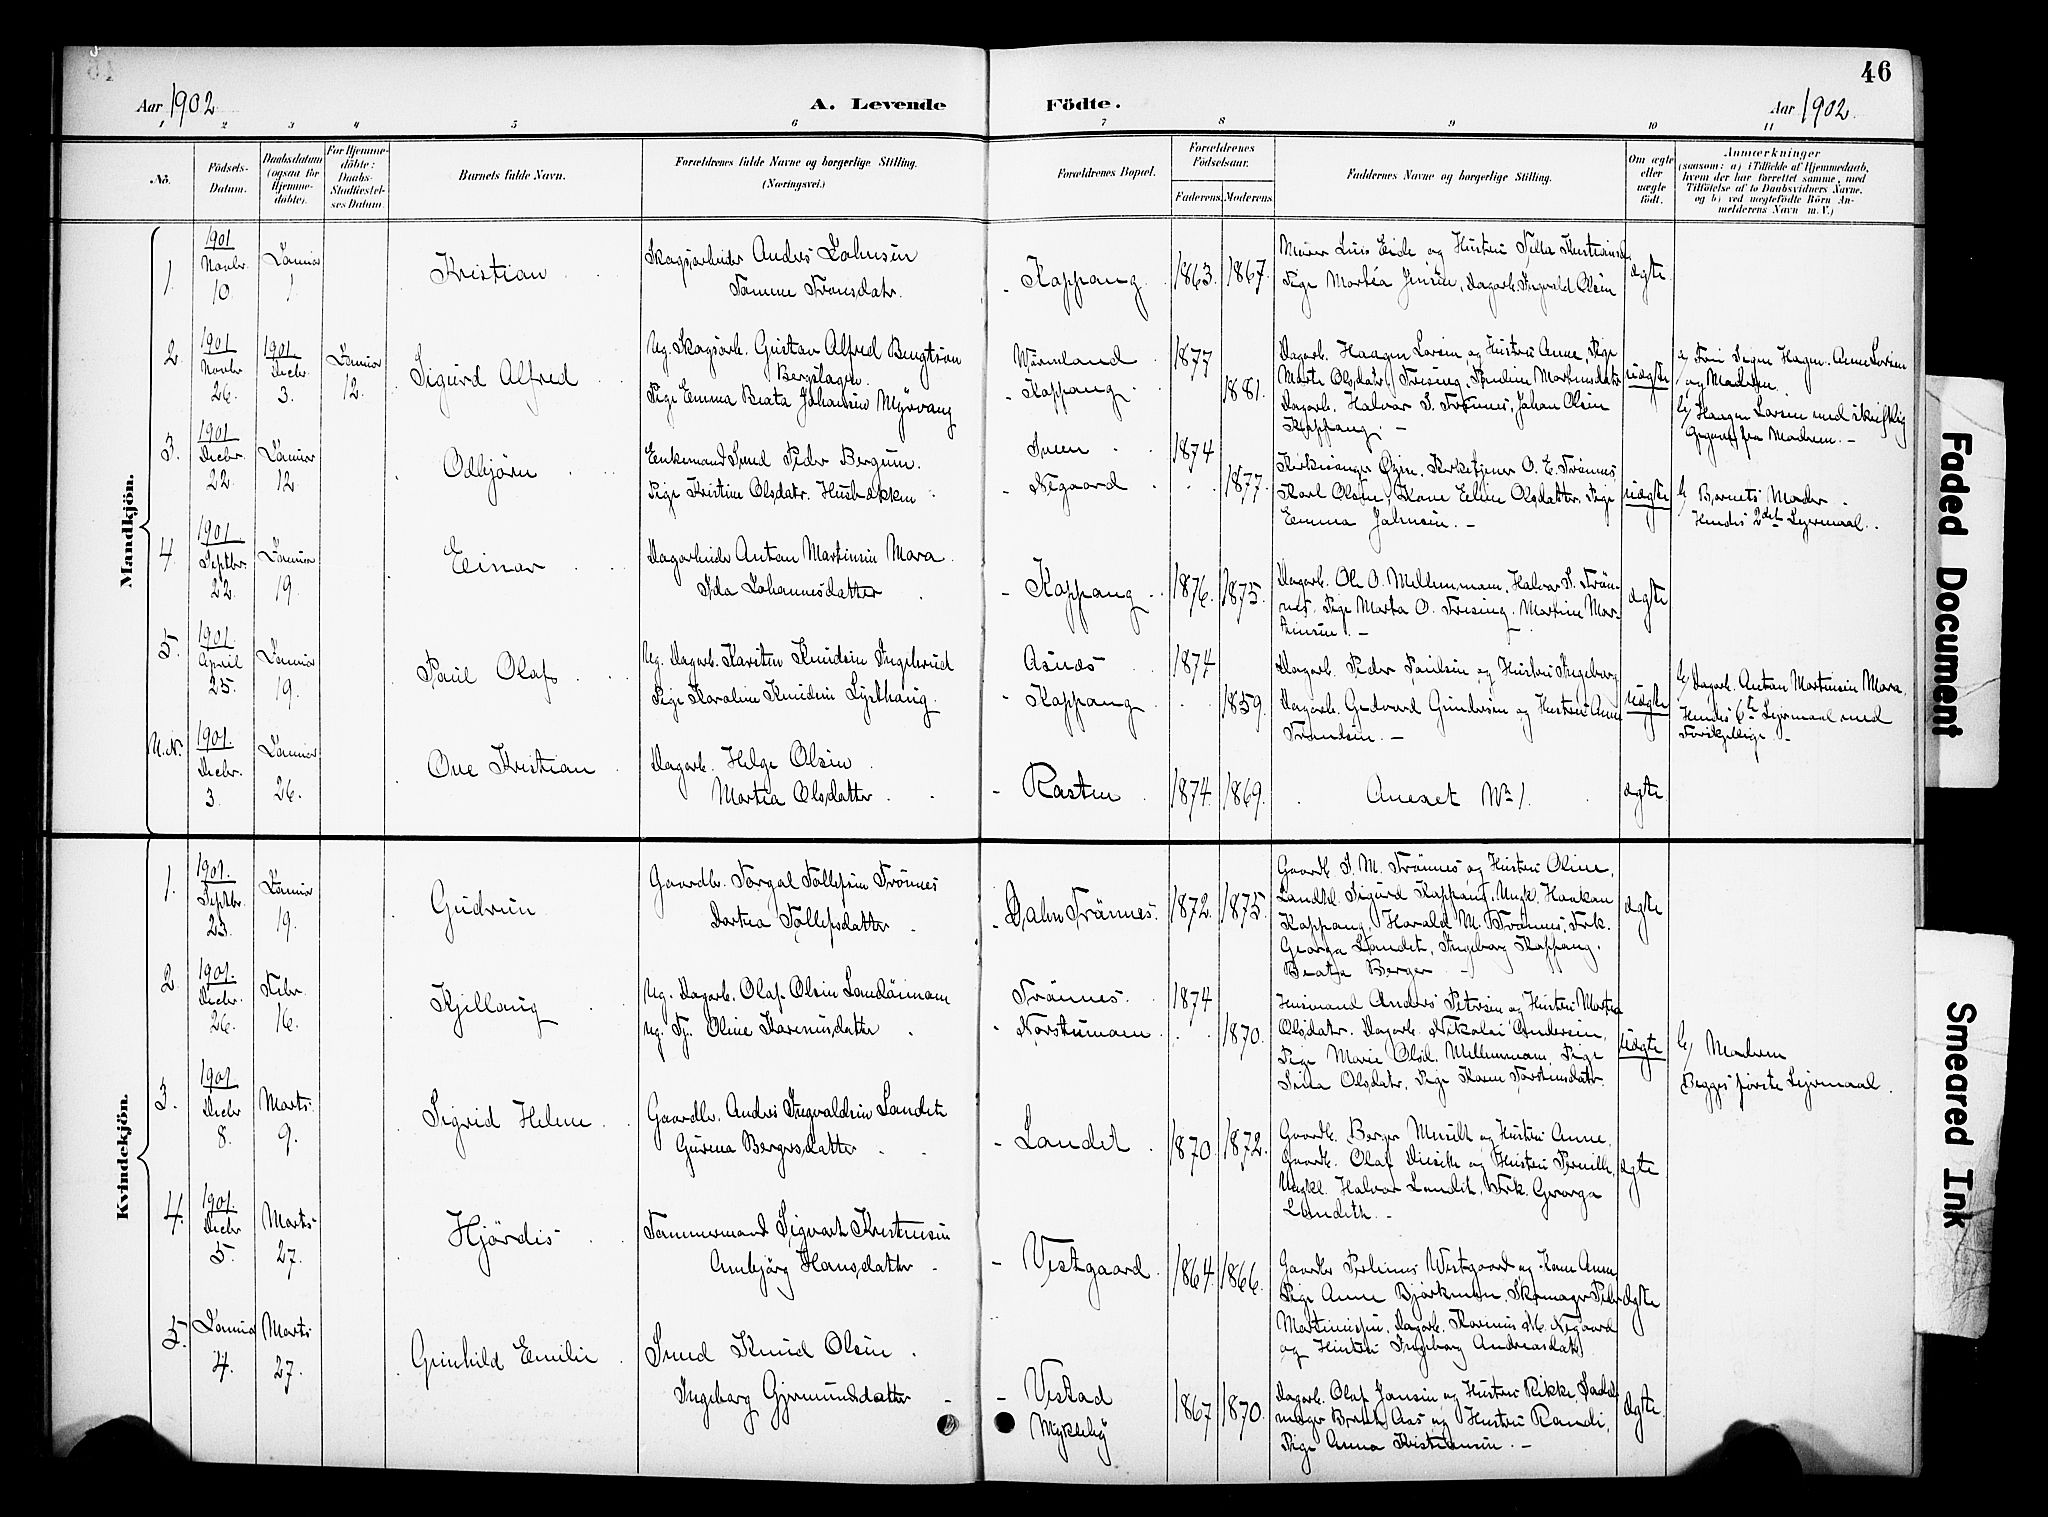 46
Aar 1902
A. Levende Födte.
Aar 1902.
1 2 3 4 5 6 7 8 9 10 11
No.
Födsels-
Datum.
Daabsdatum
(ogsaa for
Hjemme-
döbte).
For Hjemme-
döbte:
Daabs-
Stadfæstel-
ses Datum.
Barnets fulde Navn.
Forældrenes fulde Navne og borgerlige Stilling.
(Næringsvei.)
Forældrenes Bopæl.
Forældrenes
Födselsaar.
Faderens.
Moderens.
Faddernes Navne og borgerlige Stilling.
Om ægte
eller
uægte
födt.
Anmærkninger
(saasom: a) i Tilfælde af Hjemmedaab,
hvem der har forrettet samme, med
Tilföielse af to Daabsvidners Navne.
og b) ved uægtefödte Börn An-
melderens Navn m. V.)
Mandkjön.
1.
1901
Novbr.
10
Januar
1.
Kristian
Skogsarbeider Andres Johnsen
Tomine Transdatr.
Koppang
1863. 1867.
Murer Luis Eide og Hustru
Pige Martéa Jensen, Dagarb. Ingvald Olsen
ægte
2
1901
Novbr
26.
1901.
Decbr.
3.
Januar
12.
Sigurd Alfred
Ug. Skogsarb. Gustav Alfred Bengtson
Bergslagen.
Pige Emma Beata Johansen Myrvang
Värmland
Koppang
1877
1881.
Dagarb. Haagen Larsen og Hustru Anne, Pige
Marte Olsdatr. Tresing, Pauline Martinsdatr
Dagarb. Halvor S. Trönnes, Johan Olsen
Koppang. -
uægte
og Moderen.
b/ Haagen Larsen med skriftlig
Opgave fra Moderen. -
3.
1901
Decbr.
22.
Januar
12
Odbjörn
Enkemand Smed Peder Bergum.
Pige Kristine Olsdatr. Husbækken
Negaard
1874
1877.
Kirkesanger Øzen, Kirketjener O. E. Trönnes,
Karl Olsen, Kone Eline Olsdatter, Pige
Emma Johnsen. -
uægte
b/ Barnets Moder
Hendes 2det Leiermaal.
4
1901
Septbr.
22.
Januar
19.
Einar
Dagarbeider Anton Martinsen Mora
Ida Johannesdatter
Koppang
1876. 1875.
Dagarb. Ole O. Mellemmoen, Halvor S. Trön-
nes, Pige Marta O. Tresing, Martine Mar-
tinsen. -
ægte
5.
1901.
April
25.
Januar
19.
Paul Olaf
Ug. Dagarb. Karsten Knudsen Ingebrud
Pige Karoline Knudsen Lysthaug.
Aasnæs
Koppang
1874
1859.
Dagarb. Peder Paulsen og Hustru Ingeborg
Dagarb. Gudvard Gundersen og Hustru Anne
Trondsen. -
uægte
b/ Dagarb. Anton Martinsen Mora,
Hendes 6te Leiermaal med
Forskjellige -
U.N.
1901.
Decbr.
3.
Januar
26.
Ove Kristian
Dagarb. Helge Olsen
Martea Olsdatter
Rasten
1874. 1869.
Anexet No 1.
ægte
Kvindekjön.
1.
1901.
Septbr.
23.
Januar
19.
Gudrun
Gaardbr. Torgal Tollefsen Trönnes
Dortea Tollefsdatter
Dalen Trönnes.
1872. 1875.
Gaardb. S. M. Trönnes og Hustru Oline,
Landhdl. Sigurd Koppang, Ungk. Haakon
Koppang, Harald M. Trönnes, Frk.
Georga Landet, Ingeborg Koppang.
Beatha Berger -
ægte
2.
1901.
Decbr.
26.
Febr.
16.
Kjellaug
Ug. Dagarb. Olaf Olsen Landáimoen
ug. Tj. Oline Karenusdatter
Trönnes.
Norstumoen
1874
1870.
Husmand Andres Petersen og Hustru Martea
Olsdatr. Dagarb. Nikolai Andersen,
Pige Marie Olsd. Mellemmoen, Pige
Olsdatr, Pige Karen Torstensdatr.
uægte
b/ Moderen
Begges förste Leiermaal.
3.
1901
Decbr
8.
Marts.
9.
Sigrid Helene
Gaardbr. Andres Ingvaldsen Landet
Gurina Bergersdatter
Landet
1870. 1872.
Gaardb. Berger Messelt og Hustru Anne,
Gaardb. Olaf og Hustru Pernille,
Ungkl. Halvor Landet, Frk. Georga
Landeth. -
ægte
4.
1901.
Decbr
5.
Marts
27.
Hjördis
Tømmermand Sigvart Kristensen
Anbjörg Hansdatter
Vestgaard
1864. 1866.
Gaardbr Pelinus Westgaard og Kone Anne,
Pige Anne Björkmoen, Skomager Peder
Martiniusen, Dagarb. Karenus M. Negaard
og Hustru Ingeborg Andreasdatr
ægte
5.
Januar
4.
Marts
27.
Gunhild Emilie
Smed Knud Olsen
Ingeborg Gjermundsdatter
Vestad
Mykleby
1867 1870.
Dagarb. Olaf Jensen og Hustru Rikke, Sadel-
mager Aas og Hustru Randi,
Pige Anna Kristiansen. -
ægte.
Faded Document
Smeared Ink